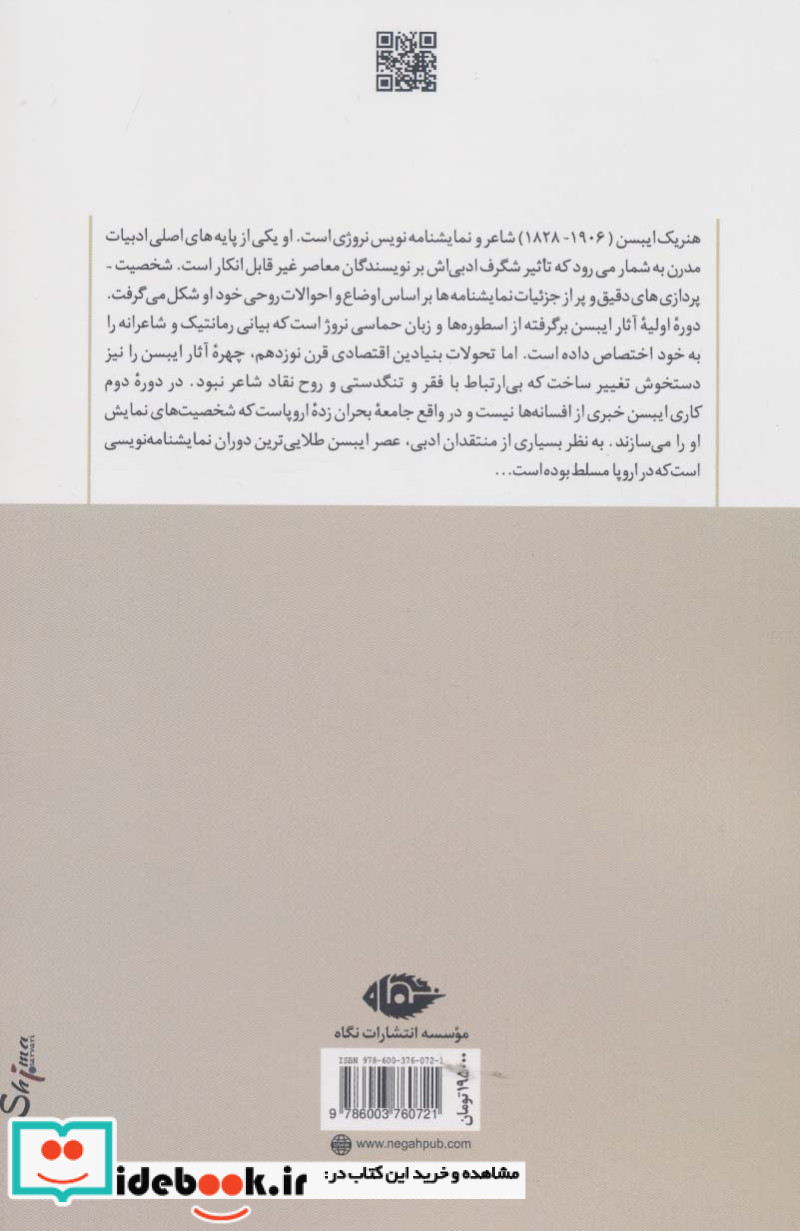 هنریک ایبسن (۱۹۰۶- ۱۸۲۸) شاعر و نمایشنامه نویس نروژی است. او یکی از پایه های اصلی ادبیات
مدرن به شمار می رود که تأثیر شگرف ادبی‌اش بر نویسندگان معاصر غیر قابل انکار است. شخصیت -
پردازی های دقیق و پر از جزئیات نمایشنامه ها بر اساس اوضاع و احوالات روحی خود او شکل می‌گرفت.
دورهٔ اولیهٔ آثار ایبسن برگرفته از اسطوره‌ها و زبان حماسی نروژ است که بیانی رمانتیک و شاعرانه را
به خود اختصاص داده است. اما تحولات بنیادین اقتصادی قرن نوزدهم، چهرهٔ آثار ایبسن را نیز
دستخوش تغییر ساخت که بی‌ارتباط با فقر و تنگدستی و روح نقاد شاعر نبود. در دورهٔ دوم
کاری ایبسن خبری از افسانه‌ها نیست و در واقع جامعهٔ بحران زدهٔ اروپاست که شخصیت‌های نمایش
او را می‌سازند. به نظر بسیاری از منتقدان ادبی، عصر ایبسن طلایی‌ترین دوران نمایشنامه‌نویسی
است که در اروپا مسلط بوده است...
نگاه
مؤسسه انتشارات نگاه
ISBN 978-600-376-072-1
9 786003 760721
۱۹۵۰۰۰ تومان
www.negahpub.com
Shima
مشاهده و خرید این کتاب در:
idebook.ir